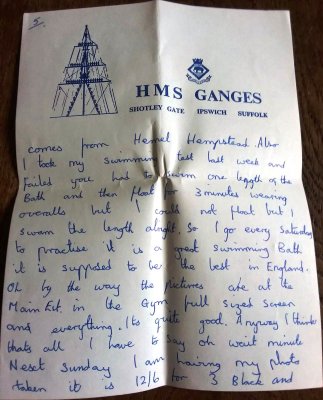 5
HMS GANGES
SHOTLEY GATE IPSWICH SUFFOLK
comes from Hemel Hempstead. Also
I took my swimming test last week and
failed you had to swim one length of the
Bath and then float for 3 minutes wearing
overalls but I could not float but I
swam the length alright, So I go every Saturday
to practise it is a great swimming Bath
it is supposed to be the best in England.
Oh by the way the pictures are at the
Main Est. in the Gym full sized screen
and everything. Its quite good. Anyway I think
thats all I have to say oh wait minute
Next Sunday I am having my photo
taken it is 12/6 for 3 Black and